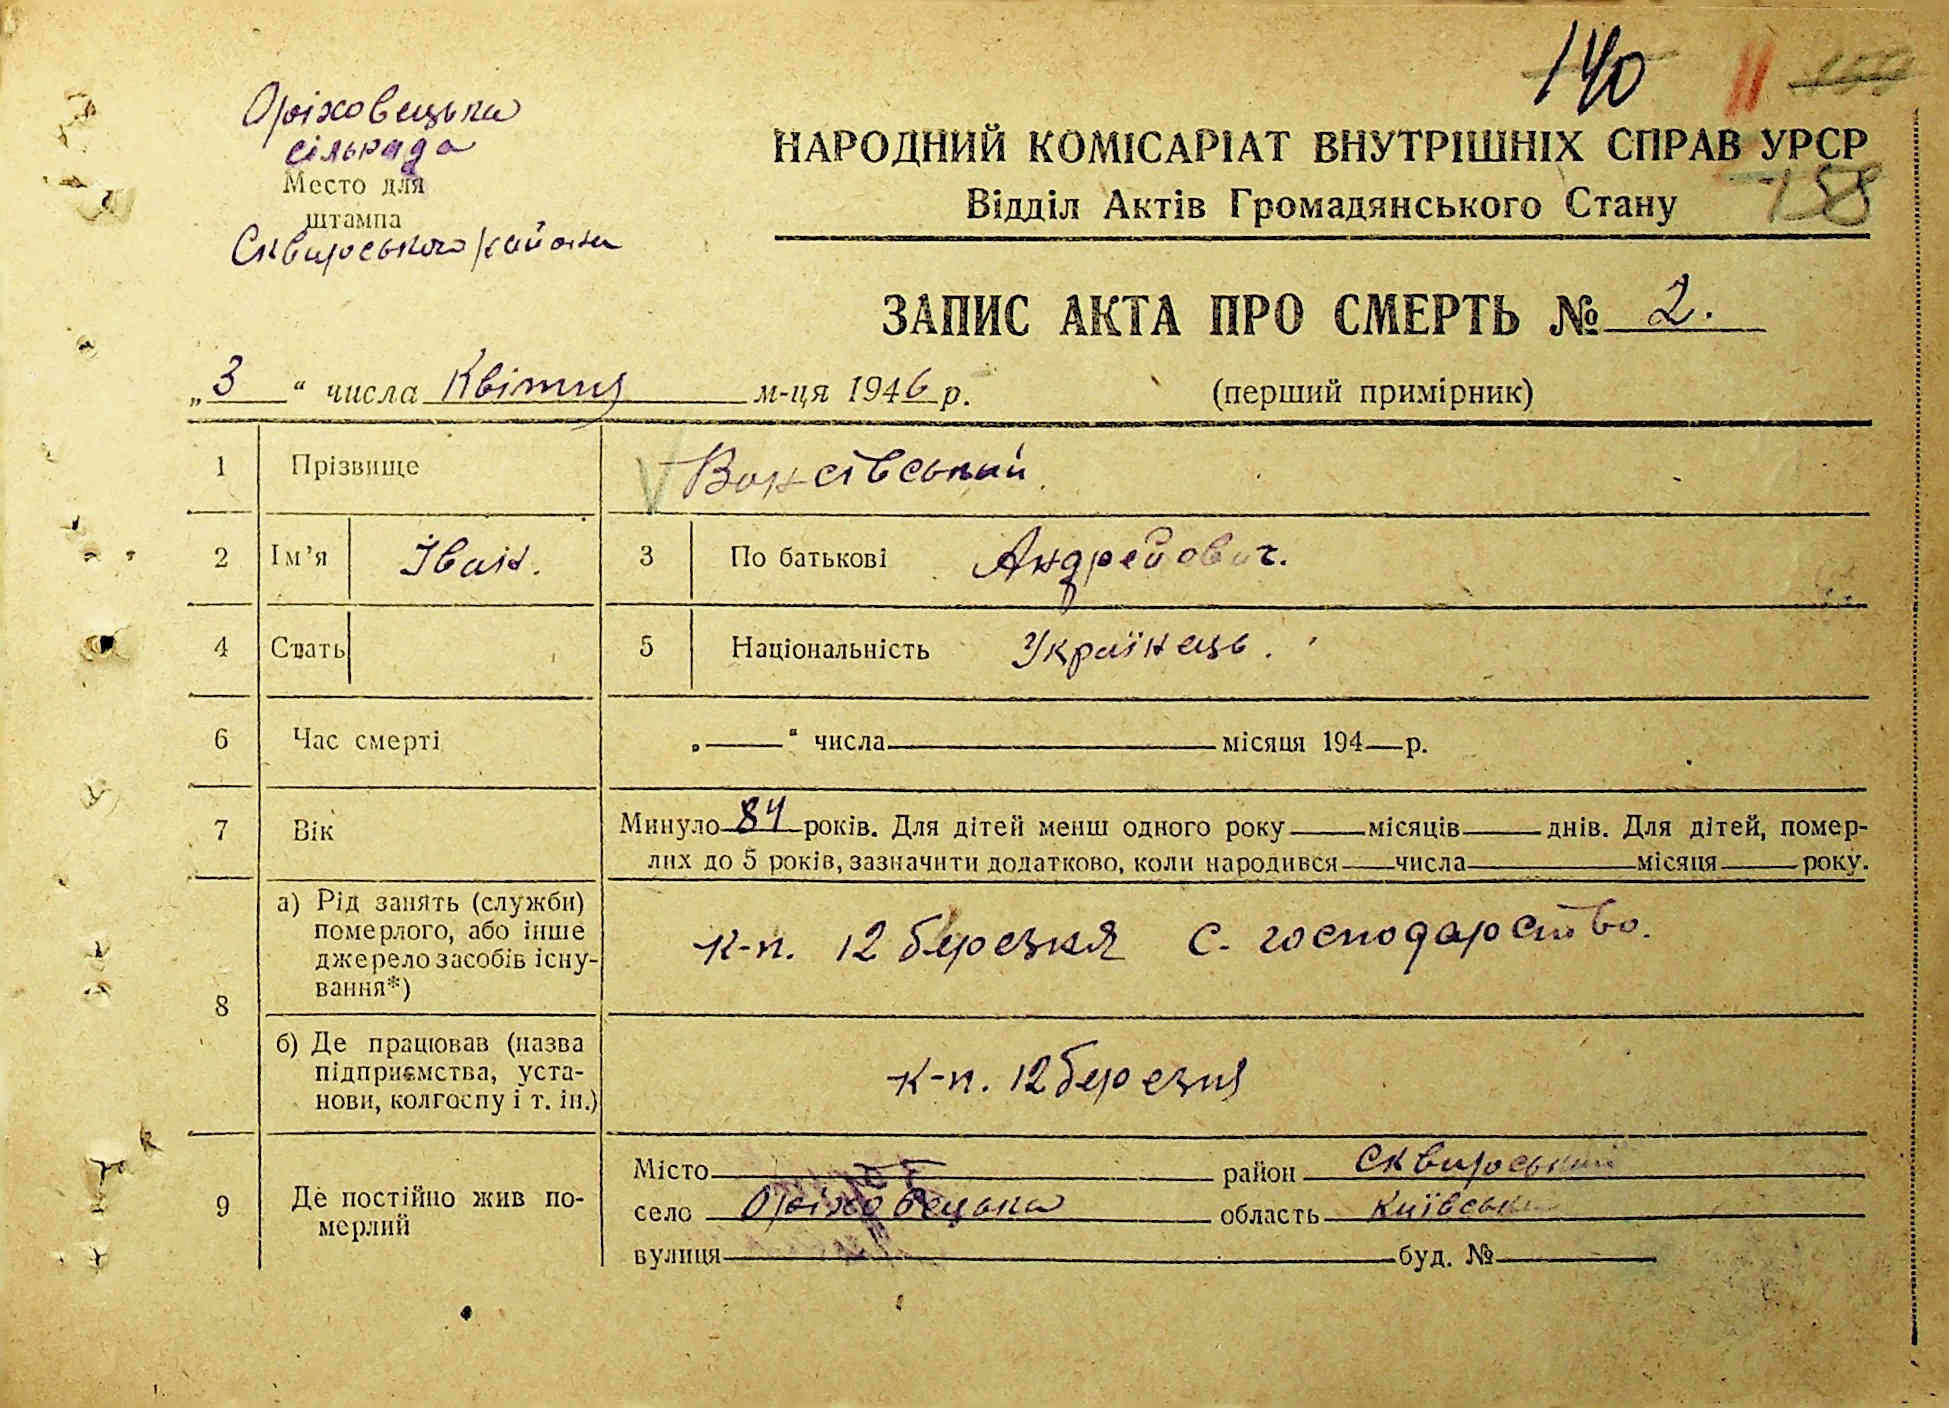 140 11
Оріховецька
сільрада
Место для
штампа
Сквирського району
НАРОДНИЙ КОМІСАРІАТ ВНУТРІШНІХ СПРАВ УРСР
Відділ Актів Громадянського Стану 158
ЗАПИС АКТА ПРО СМЕРТЬ № 2.
„3“ числа Квітня м-ця 1946 р. (перший примірник)
1 Прізвище
2 Ім’я Іван. 3 По батькові Андрейович.
4 Стать 5 Національність Українець.
6 Час смерті „ “ числа місяця 194 р.
7 Вік Минуло 84 років. Для дітей менш одного року місяців днів. Для дітей, помер-
лих до 5 років, зазначити додатково, коли народився числа місяця року.
8 а) Рід занять (служби)
померлого, або інше
джерело засобів існу-
вання*)
к-п. 12 березня с. господарство.
б) Де працював (назва
підприємства, уста-
нови, колгоспу і т. ін.)
к-п. 12 березня
9 Де постійно жив по-
мерлий
Місто район Сквирський
село Оріховецька область Київська
вулиця буд. №